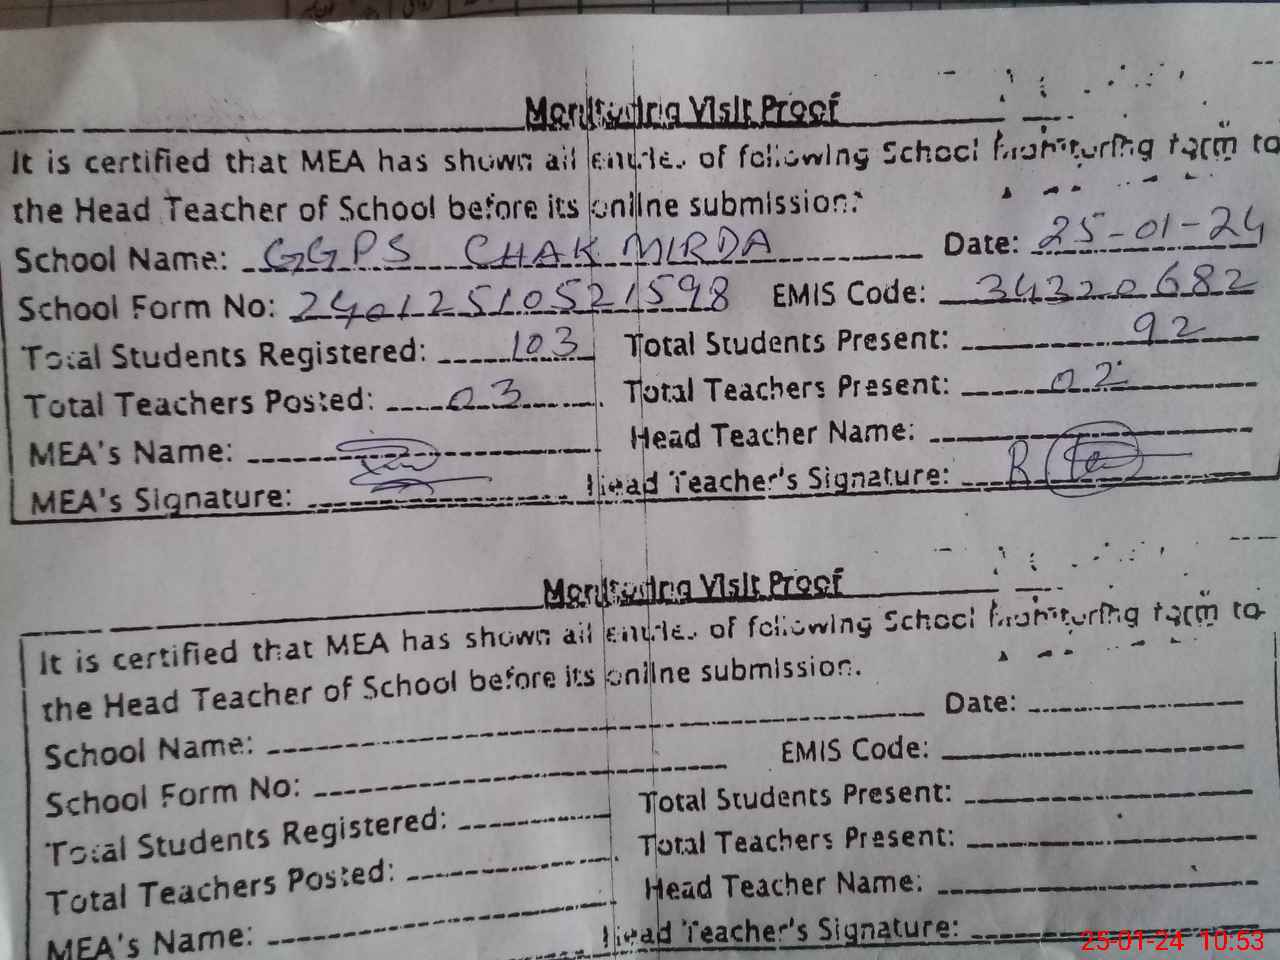 Monitoring Visit Proof
It is certified that MEA has shown all entries of following School monitoring form to
the Head Teacher of School before its online submission.
School Name: GGPS CHAK MIRDA Date: 25-01-24
School Form No: 24012510521598 EMIS Code: 34320682
Total Students Registered: 103 Total Students Present: 92
Total Teachers Posted: 03 Total Teachers Present: 02
MEA's Name: Head Teacher Name:
MEA's Signature: Head Teacher's Signature: R
Monitoring Visit Proof
It is certified that MEA has shown all entries of following School monitoring form to
the Head Teacher of School before its online submission.
School Name: Date:
School Form No: EMIS Code:
Total Students Registered: Total Students Present:
Total Teachers Posted: Total Teachers Present:
MEA's Name: Head Teacher Name:
Head Teacher's Signature:
25-01-24 10:53